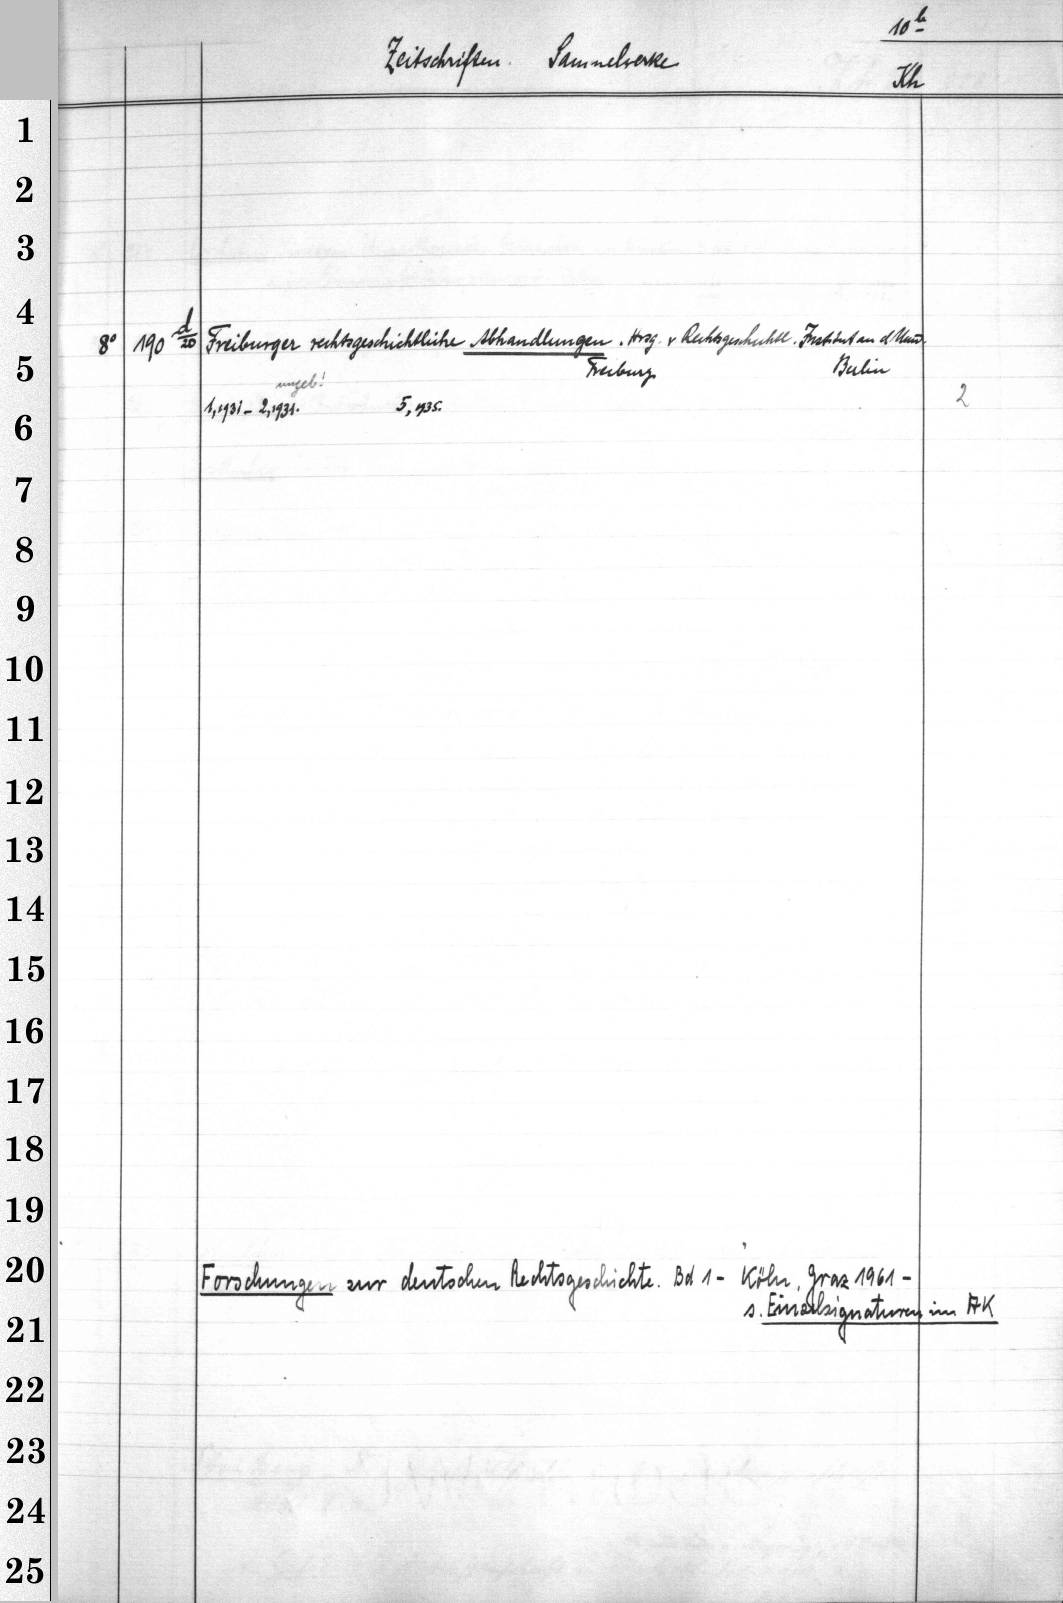 10 b
Zeitschriften. Sammelwerke
Kh
1
2
3
4
8° 190 d/20 Freiburger rechtsgeschichtliche Abhandlungen. Hrsg. v Rechtsgeschichtl. Institut an d Univ.
5
Freiburg Berlin
ungeb!
1,1931 - 2,1931. 5,1935. 2
6
7
8
9
10
11
12
13
14
15
16
17
18
19
20
Forschungen zur deutschen Rechtsgeschichte. Bd 1 - Köln, Graz 1961 -
s. Einzelsignaturen im AK
21
22
23
24
25